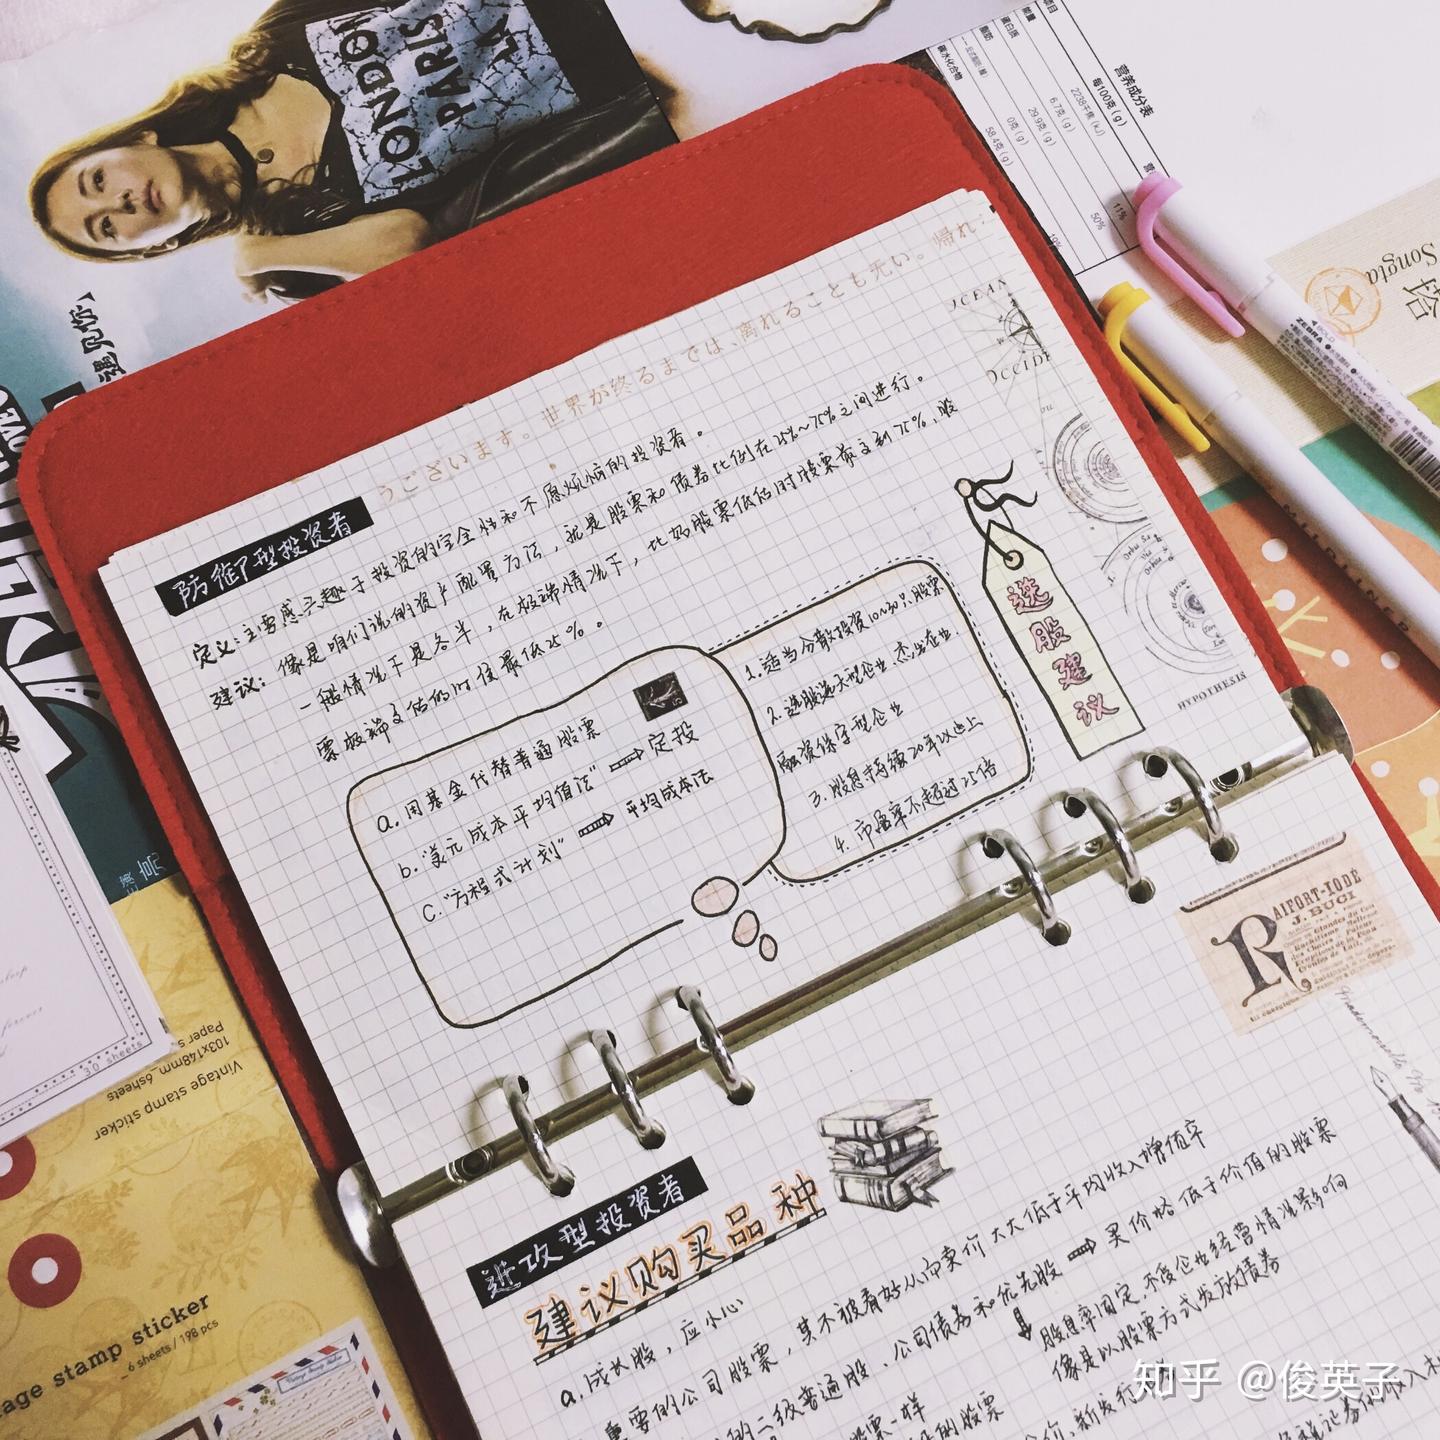 LONDON
PARIS
LA
遇见你
营养成分表
项目
每100克(g)
能量
2238千焦(kJ)
蛋白质
6.7克(g)
11%
脂肪
29.9克(g)
50%
0克(g)
碳水化合物
58.4克(g)
19%
塔
Songta
ZEBRA
MILDLINER
うございます。世界が終るまでは、离れることも无い。帰れ
OCEAN
OCCIDE
HYPOTHESIS
防御型投资者
定义:主要感兴趣于投资的安全性和不愿烦恼的投资者。
建议:像是咱们说的资产配置方法,就是股票和债券比例在25%~75%之间进行。
一般情况下是各半,在极端情况下,比如股票低估时股票最高到75%,股
票极端高估的时候最低25%。
a.用基金代替普通股票
b."美元成本平均值法"⇒定投
c."方程式计划"⇒平均成本法
1.适当分散投资10~30只股票
2.选股选大型企业.杰出企业.
融资保守型企业
3.股息持续20年以上
4.市盈率不超过25倍
选股建议
RAIFORT-IODÉ
J. BUCI
进攻型投资者
建议购买品种
a.成长股,应小心
重要的公司股票,其不被看好从而卖价大大低于平均收入增值率
的二级普通股、公司债券和优先股⇒买价格低于价值的股票
股息率固定,不受企业经营情况影响
像是以股票方式发放债券
股票一样
的股票
30 sheets
Vintage stamp sticker
103x148mm_6sheets
Paper s
age stamp sticker
6 sheets / 198 pcs
知乎 @俊英子